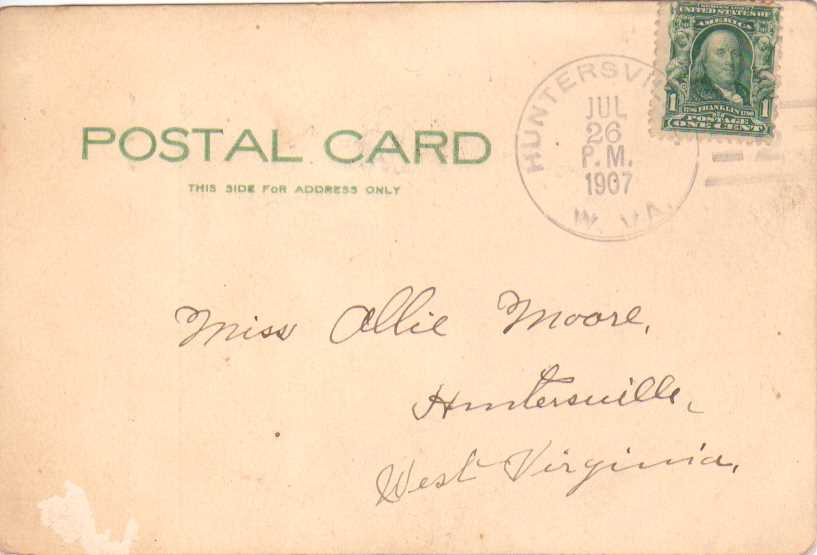 UNITED STATES OF
AMERICA
1 FRANKLIN 1
POSTAGE
ONE CENT
HUNTERSVI
JUL
26
P.M.
1907
W. VA.
POSTAL CARD
THIS SIDE FOR ADDRESS ONLY
Miss Allie Moore,
Huntersville,
West Virginia,